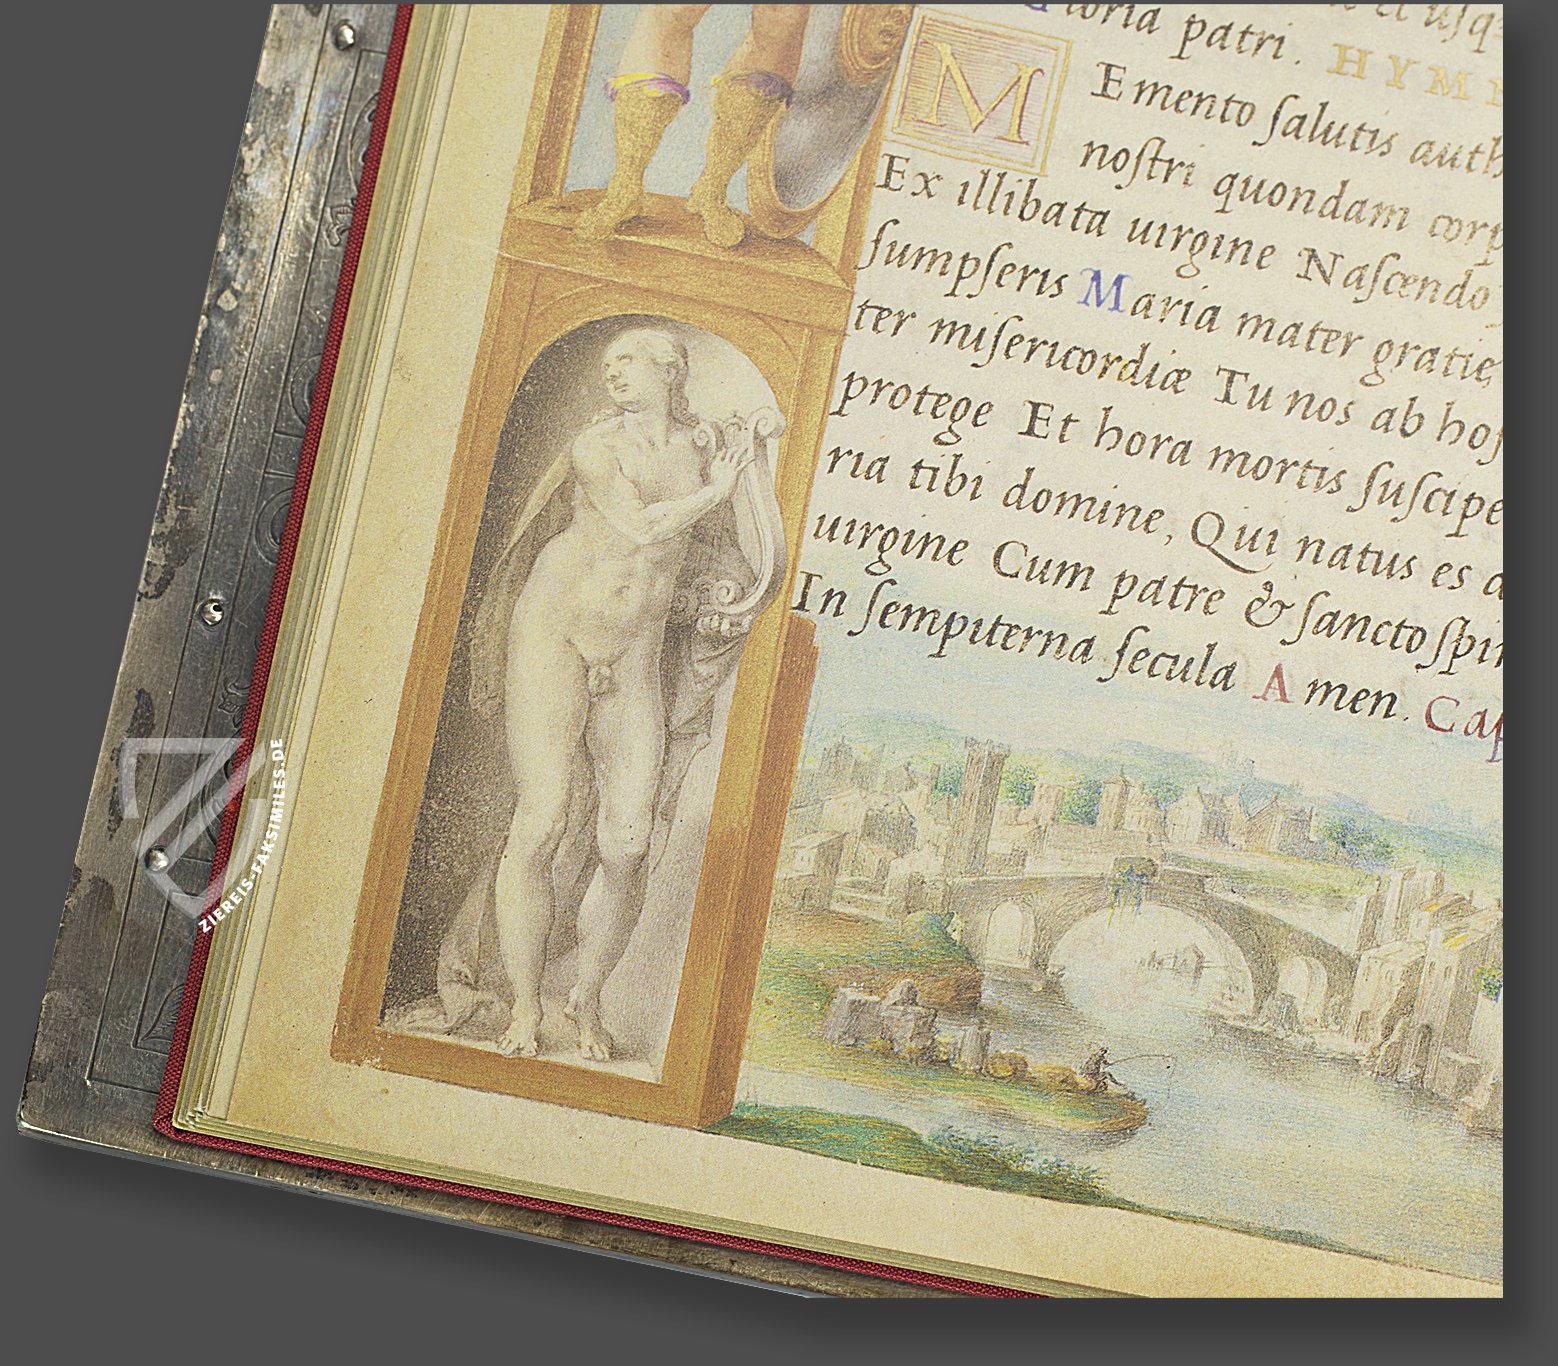 Gloria patri. HYMN
M Emento ſalutis auth
noſtri quondam corp
Ex illibata uirgine Naſcendo
ſumpſeris Maria mater gratie,
ter miſericordiæ Tu nos ab hoſ
protege Et hora mortis ſuſcipe
ria tibi domine, Qui natus es a
uirgine Cum patre & ſancto ſpir
In ſempiterna ſecula Amen. Cap
ZIEREIS-FAKSIMILES.DE